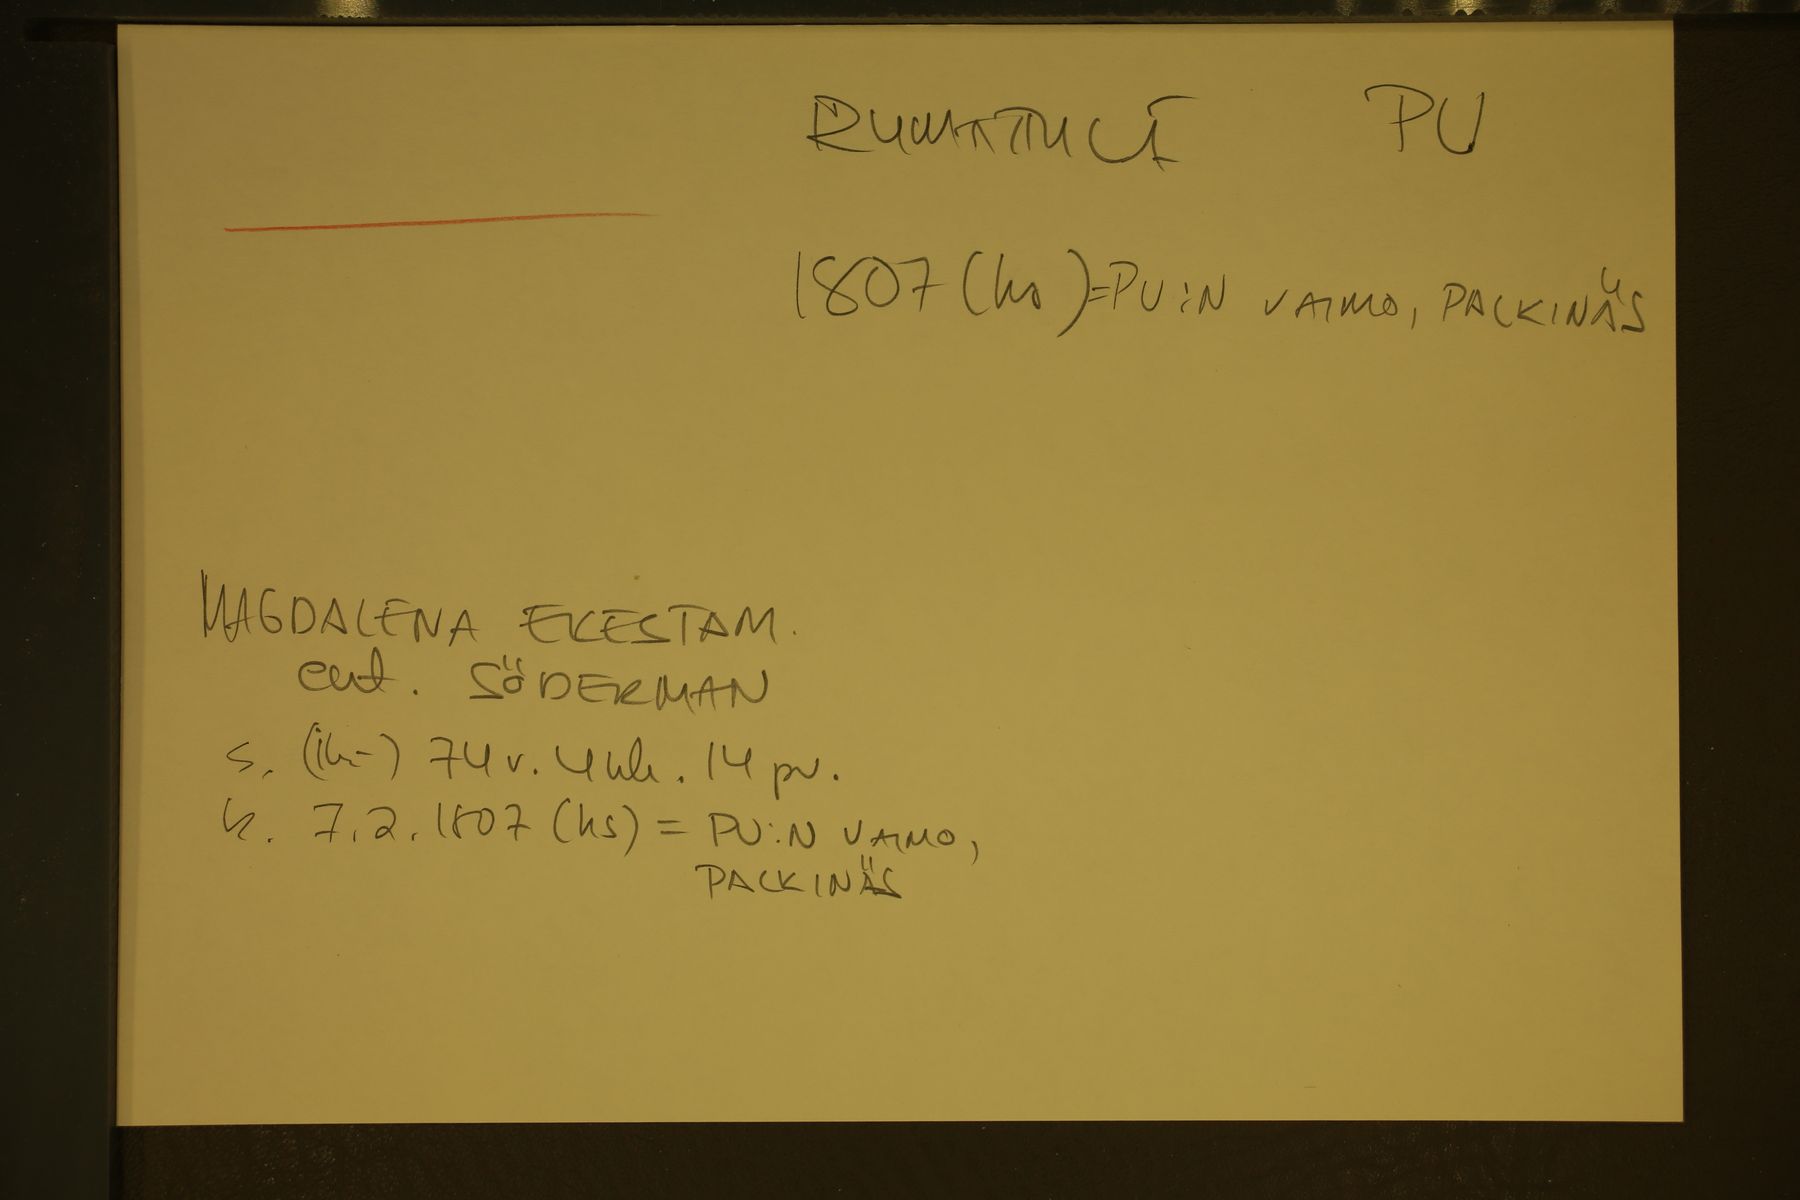 RYMÄTTYLÄ PU
1807 (hs) = PU:N VAIMO, PACKINÄS
MAGDALENA EKESTAM.
ent. SÖDERMAN
s. (ikä) 74 v. 4 kk. 14 pv.
k. 7.2.1807 (hs) = PU:N VAIMO,
PACKINÄS